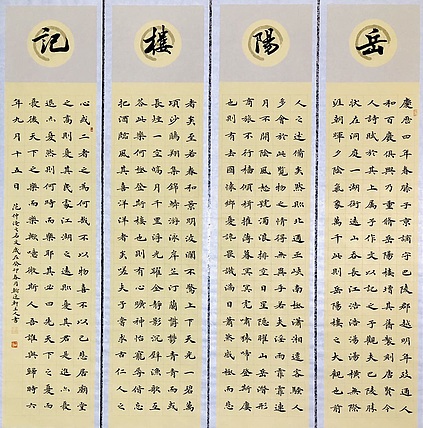 岳
慶曆四年春滕子京謫守巴陵郡越明年政通人
和百廢俱興乃重脩岳陽樓增其舊制刻唐賢今
人詩賦於其上屬予作文以記之予觀夫巴陵勝
狀在洞庭一湖銜遠山吞長江浩浩湯湯橫無際
涯朝暉夕陰氣象萬千此則岳陽樓之大觀也前
陽
人之述備矣然則北通巫峽南極瀟湘遷客騷人
多會於此覽物之情得無異乎若夫霪雨霏霏連
月不開陰風怒號濁浪排空日星隱曜山岳潛形
商旅不行檣傾楫摧薄暮冥冥虎嘯猿啼登斯樓
也則有去國懷鄉憂讒畏譏滿目蕭然感極而悲
樓
者矣至若春和景明波瀾不驚上下天光一碧萬
頃沙鷗翔集錦鱗游泳岸芷汀蘭郁郁青青而或
長煙一空皓月千里浮光耀金靜影沉璧漁歌互
答此樂何極登斯樓也則有心曠神怡寵辱偕忘
把酒臨風其喜洋洋者矣嗟夫予嘗求古仁人之
記
心或二者之為何哉不以物喜不以己悲居廟堂
之高則憂其民處江湖之遠則憂其君是進亦憂
退亦憂然則何時而樂耶其必曰先天下之憂而
憂後天下之樂而樂歟噫微斯人吾誰與歸時六
年九月十五日 范仲淹之名文歲在癸卯春月